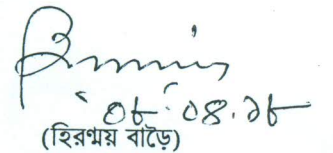 ০৮.০৪.১৮
(হিরণ্ময় বাড়ৈ)